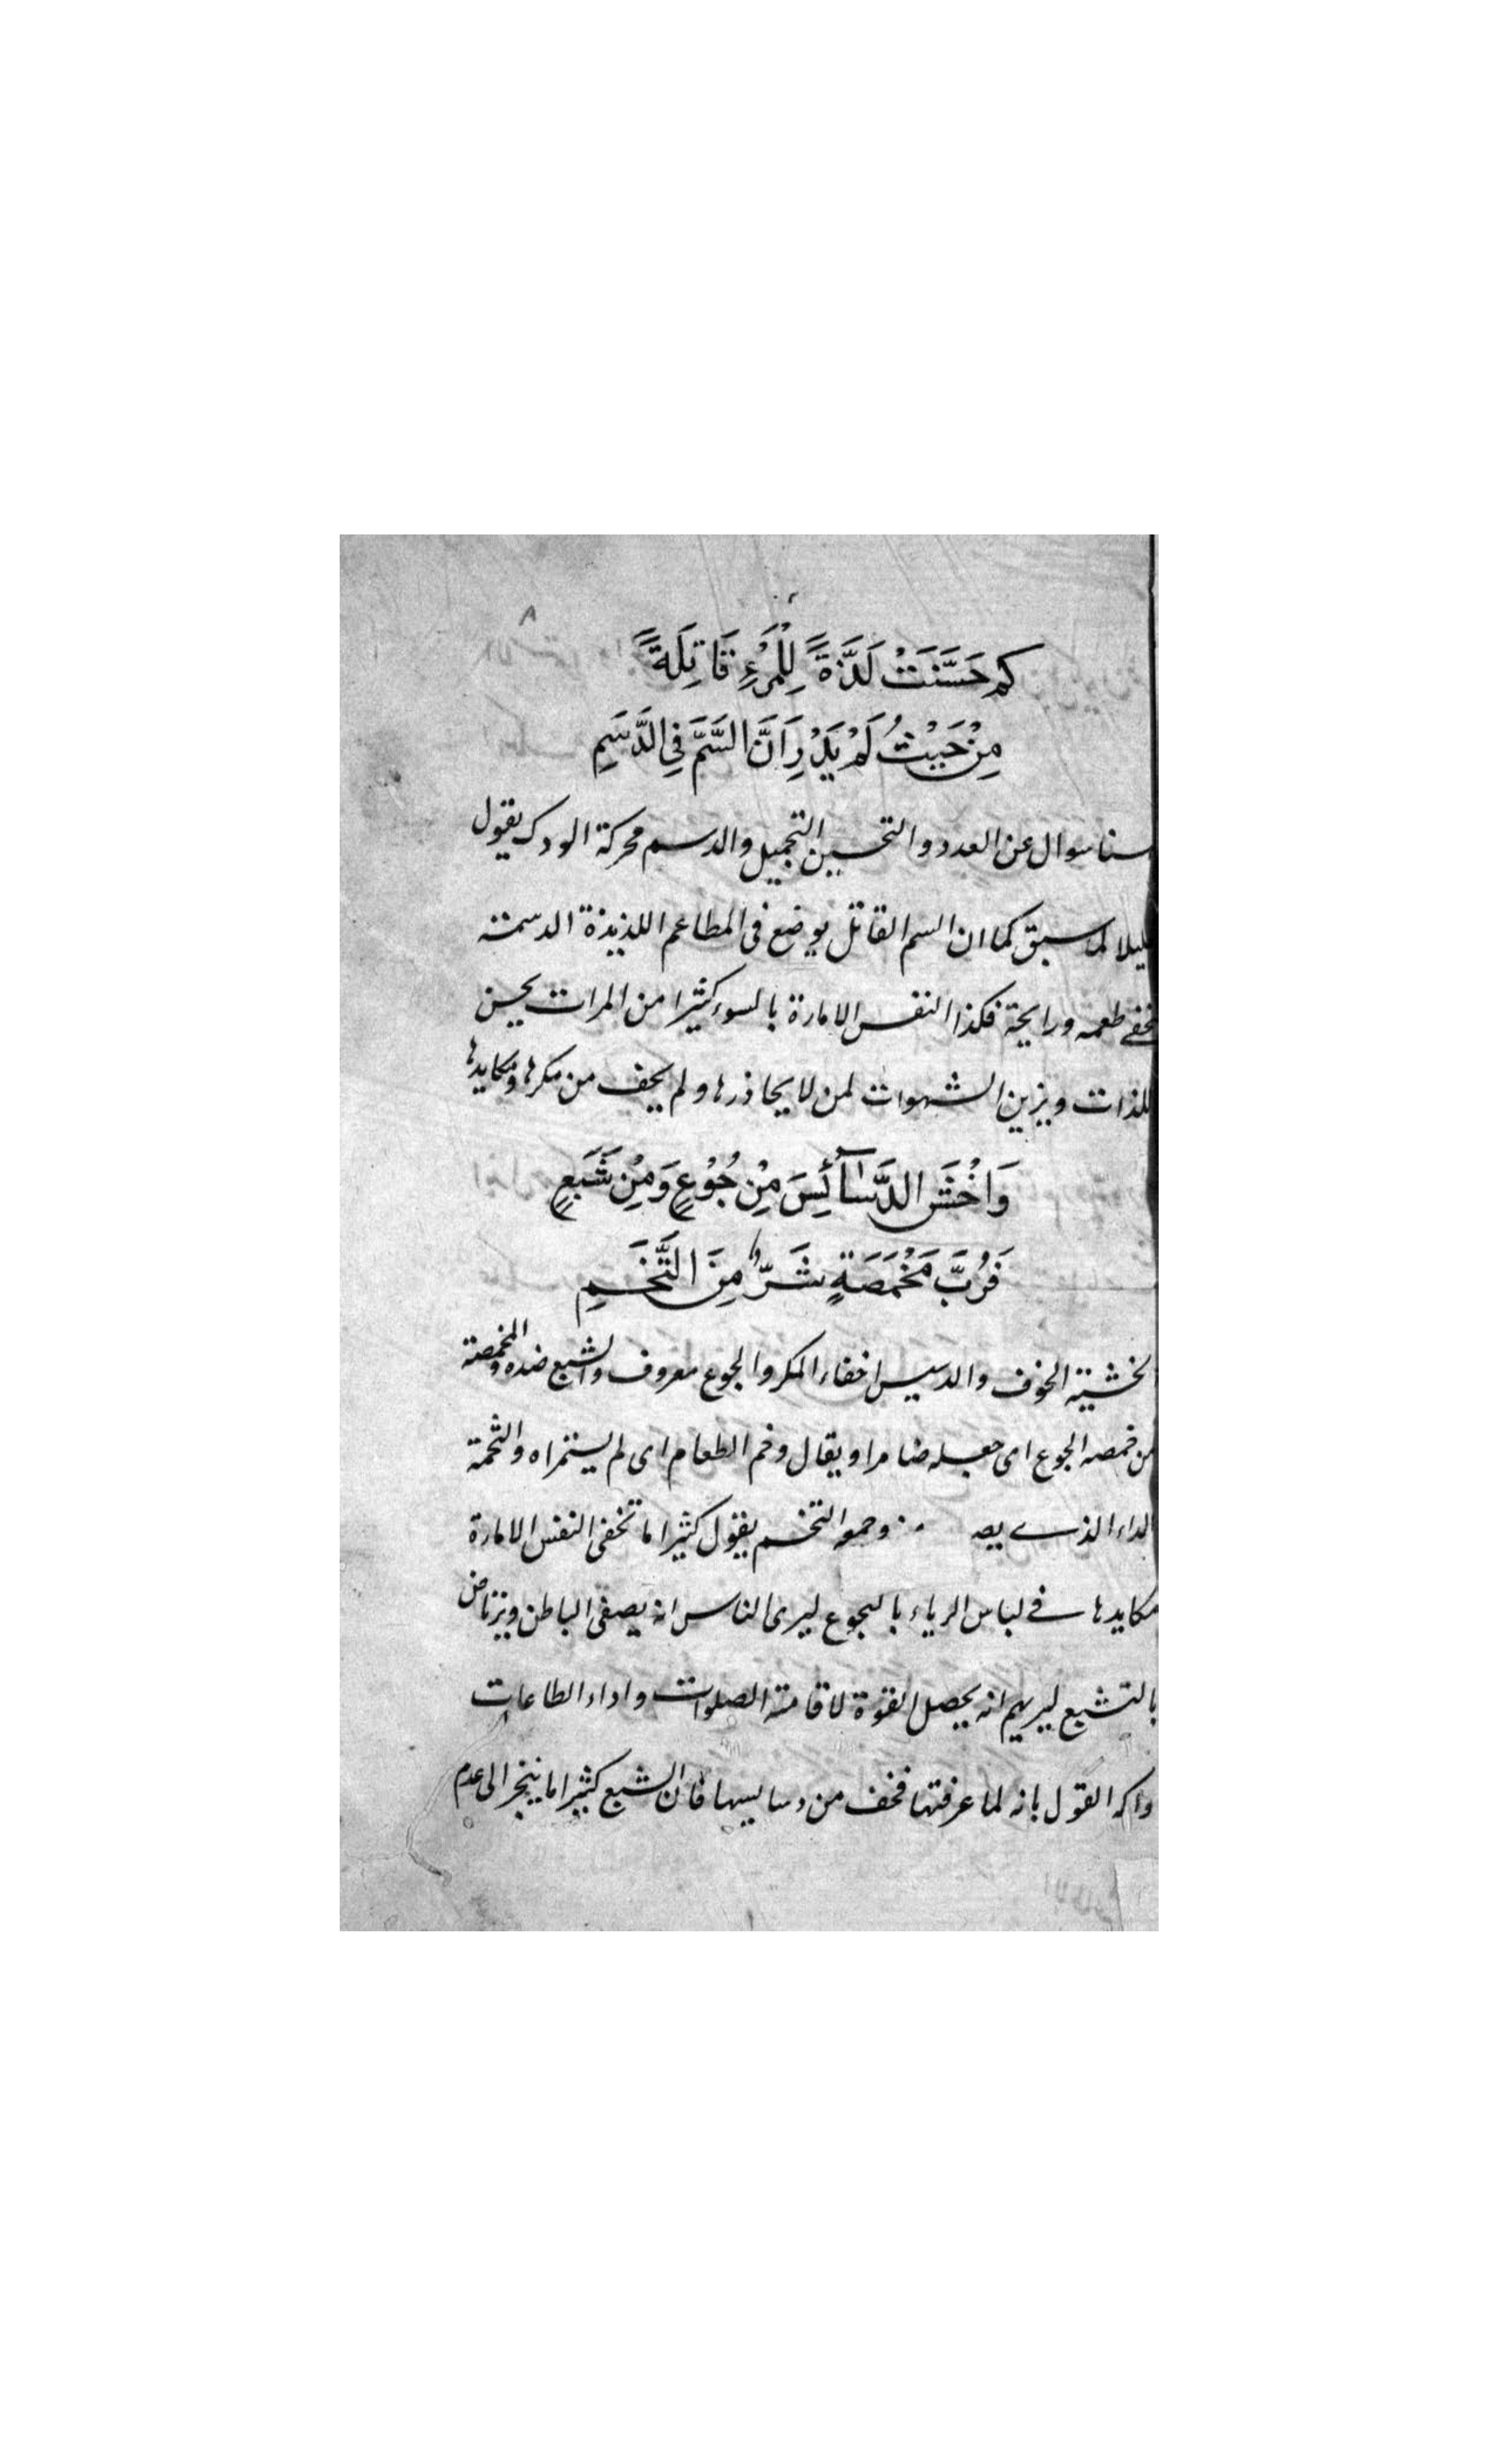 ٨
كَمْ حَسَّنَتْ لَذَّةً لِلْمَرْءِ قَاتِلَةً
مِنْ حَيْثُ لَمْ يَدْرِ اَنَّ السَّمَّ فِي الدَّسَمِ
سوال عن العدد والتحسين التجميل والدسم محركة الودك يقول
لما سبق كما ان السم القاتل يوضع فى المطاعم اللذيذة الدسمة
طعمه ورايحته فكذا النفس الامارة بالسوء كثيرا من المرات يحسن
اللذات ويزين الشهوات لمن لا يحاذرها ولم يخف من مكرها ومكايدها
وَاخْشَ الدَّسَآئِسَ مِنْ جُوْعٍ وَمِنْ شَبَعٍ
فَرُبَّ مَخْمَصَةٍ شَرٌّ مِنَ التُّخَمِ
الخشية الخوف والدسيس اخفاء المكر والجوع معروف والشبع ضده والمخمصة
من خمصه الجوع اى جعله ضامرا ويقال وخم الطعام اى لم يستمراه والتخمة
الداء الذى يصه وجمعه التخم يقول كثيرا ما تخفى النفس الامارة
مكايدها فى لباس الرياء بالجوع ليرى الناس انه يصفى الباطن ويرتاض
بالتشبع ليريهم انه يحصل القوة لاقامة الصلوات واداء الطاعات
القول بانه لما عرفتها فخف من دسايسها فان الشبع كثيرا ما ينجر الى عدم